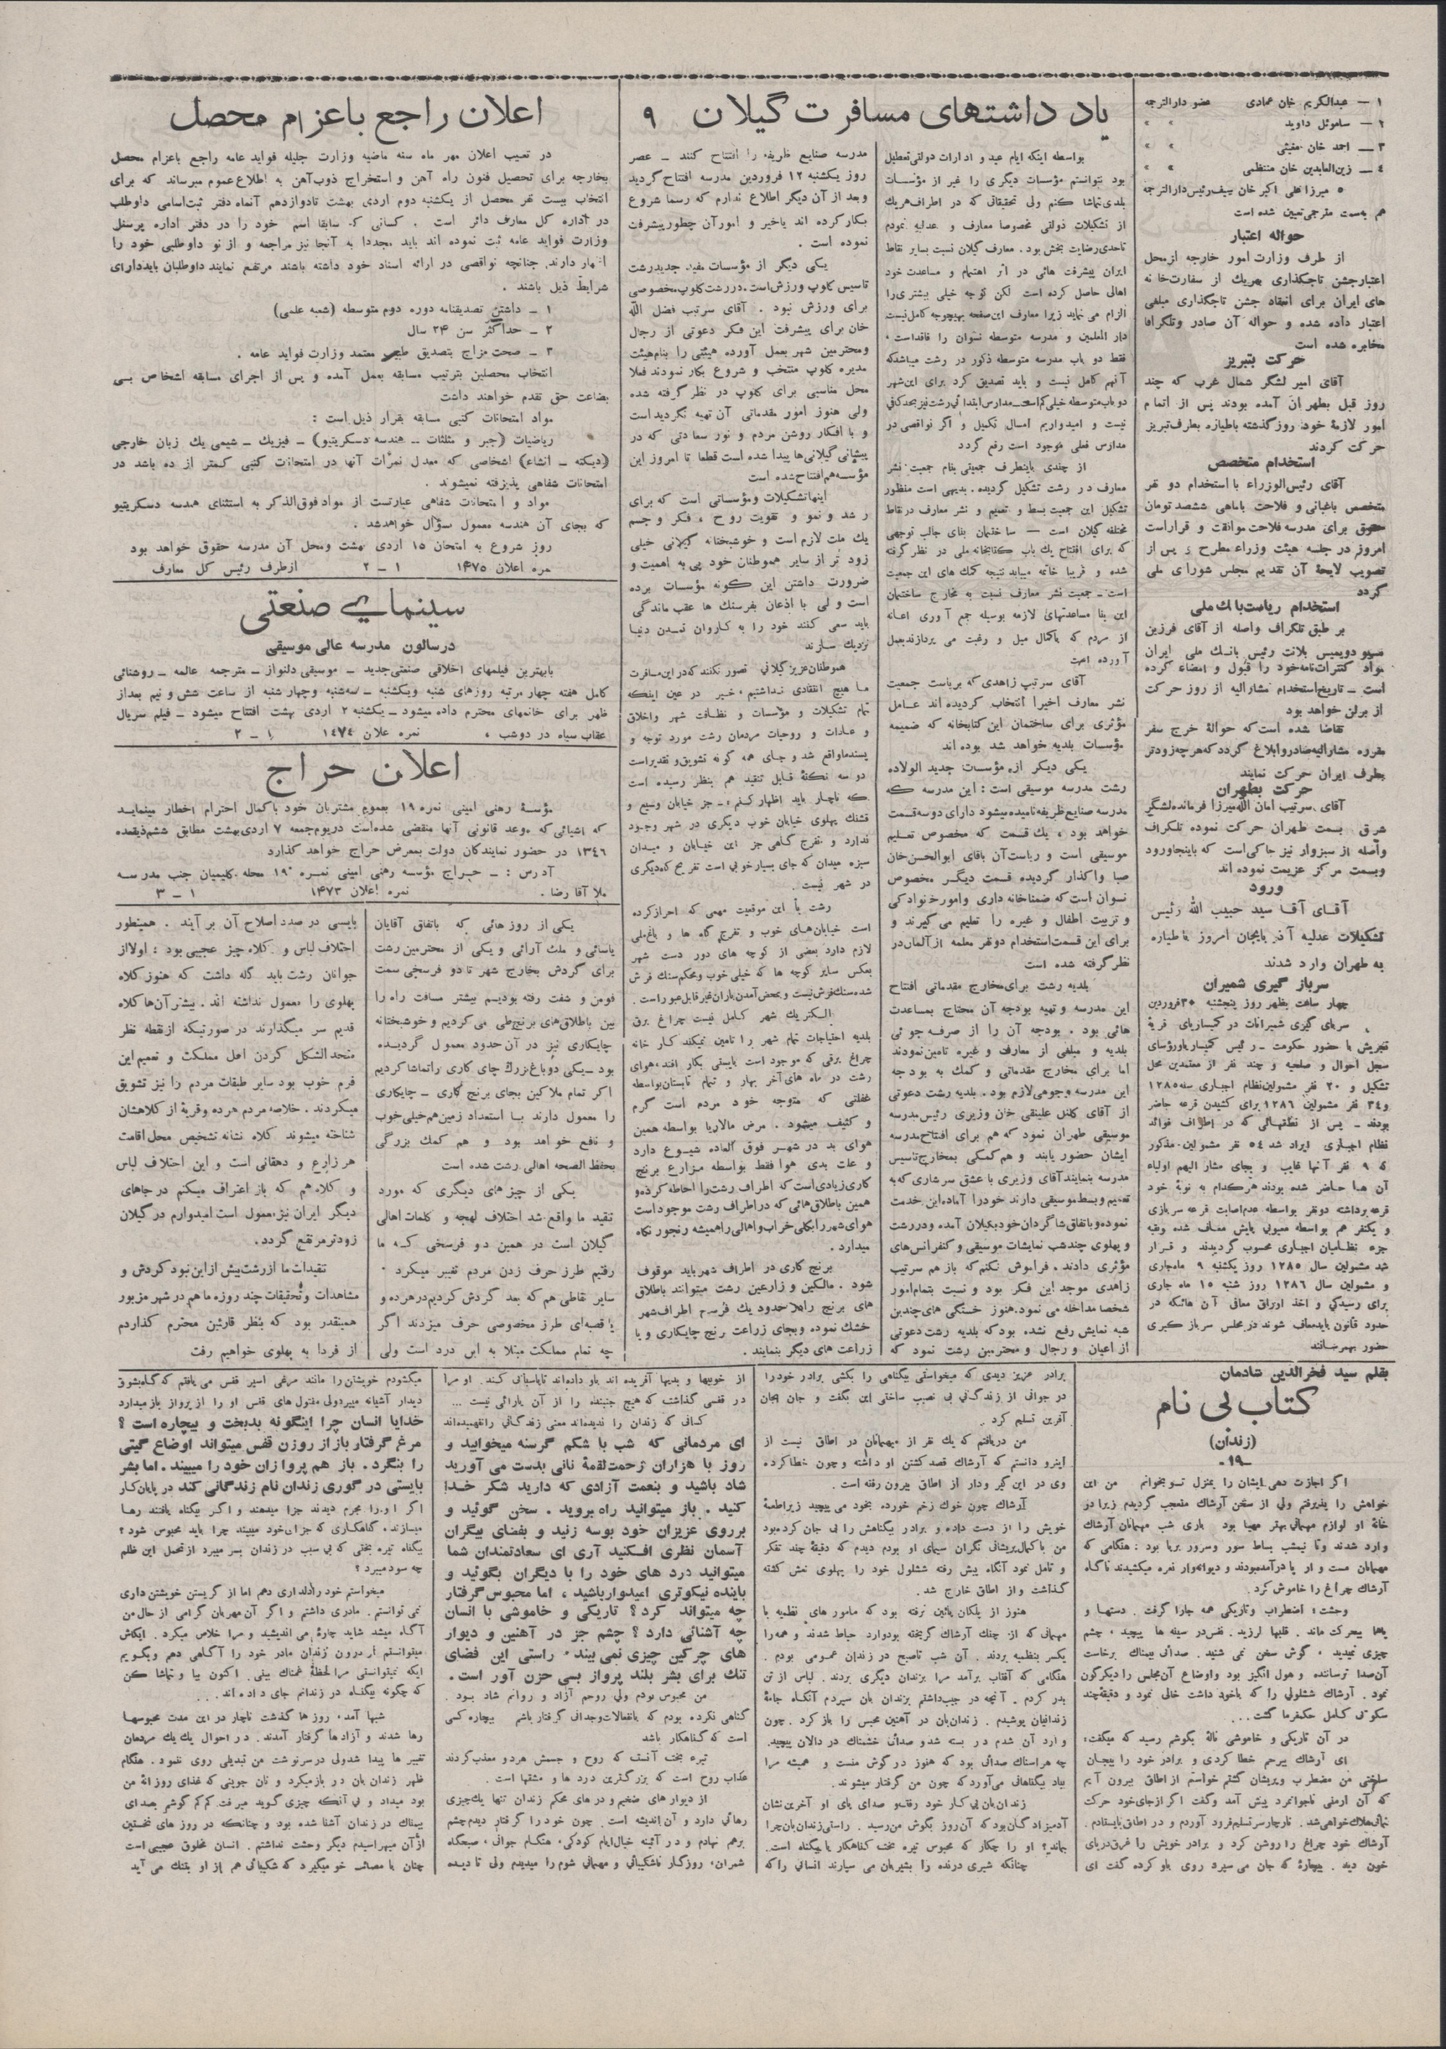 ۱ — عبدالکریم خان عمادی عضو دارالترجمه
۲ — ساموئل داوید » »
۳ — احمد خان مقبثی » »
٤ — زین‌العابدین خان منتظمی » »
۵ میرزا علی اکبر خان سیف رئیس دارالترجمه
هم بسمت مترجمی تعیین شده است
حواله اعتبار
از طرف وزارت امور خارجه از محل
اعتبار جشن تاجگذاری بهریک از سفارت خانه
های ایران برای انعقاد جشن تاجگذاری مبلغی
اعتبار داده شده و حواله آن صادر وتلگرافا
مخابره شده است
حرکت بتبریز
آقای امیر لشگر شمال غرب که چند
روز قبل بطهران آمده بودند پس از اتمام
امور لازمهٔ خود روز گذشته باطیاره بطرف تبریز
حرکت کردند
استخدام متخصص
آقای رئیس‌الوزراء با استخدام دو نفر
متخصص باغبانی و فلاحت باماهی ششصد تومان
حقوق برای مدرسه فلاحت موافقت و قرار است
امروز در جلسه هیئت وزراء مطرح و پس از
تصویب لایحهٔ آن تقدیم مجلس شورای ملی
گردد
استخدام ریاست بانك ملی
بر طبق تلگراف واصله از آقای فرزین
مسیو دویمیس بلانت رئیس بانك ملی ایران
مواد کنترات‌نامه خود را قبول و امضاء کرده
است — تاریخ استخدام مشارالیه از روز حرکت
از برلن خواهد بود
تقاضا شده است که حوالهٔ خرج سفر
مقرره مشارالیه صادر و ابلاغ گردد که هرچه زودتر
بطرف ایران حرکت نمایند
حرکت بطهران
آقای سرتیپ امان الله میرزا فرمانده لشگر
شرق بسمت طهران حرکت نموده تلگراف
واصله از سبزوار نیز حاکی است که باینجا ورود
وبسمت مرکز عزیمت نموده اند
ورود
آقای آقا سید حبیب الله رئیس
تشکیلات عدلیه آذربایجان امروز با طیاره
به طهران وارد شدند
سرباز گیری شمیران
چهار ساعت بظهر روز پنجشنبه ۳۰ فروردین
سربای گیری شمیرانات در کمیساریای قریهٔ
تجریش با حضور حکومت — رئیس کمیساریا ورؤسای
سجل احوال و صلحیه و چند نفر از معتمدین محل
تشکیل و ۲۰ نفر مشمولین نظام اجباری سنه ۱۲۸۵
و ۳٤ نفر مشمولین ۱۲۸٦ برای کشیدن قرعه حاضر
بودند — پس از نطقهائی که در اطراف فوائد
نظام اجباری ایراد شد ٥٤ نفر مشمولین مذکور
که ۹ نفر آنها غایب و بجای مشار الیهم اولیاء
آن ها حاضر شده بودند هر کدام به نوبهٔ خود
قرعه برداشته دو نفر بواسطه عدم اصابت قرعه سربازی
و یکنفر هم بواسطه معیوبی پایش معاف شده وبقیه
جزء نظامیان اجباری محسوب گردیدند و قرار
شد مشمولین سال ۱۲۸۵ روز یکشنبه ۹ ماه جاری
و مشمولین سال ۱۲۸٦ روز شنبه ۱۵ ماه جاری
برای رسیدگی و اخذ اوراق معافی آن هائیکه در
حدود قانون باید معاف شوند در مجلس سرباز گیری
حضور بهمرسانند
یاد داشتهای مسافرت گیلان ۹
بواسطه اینکه ایام عید و ادارات دولتی تعطیل
بود نتوانستم مؤسسات دیگری را غیر از مؤسسات
بلدی تماشا کنم ولی تحقیقاتی که در اطراف هریك
از تشکیلات دولتی مخصوصا معارف و عدلیه نمودم
تاحدی رضایت بخش بود . معارف گیلان نسبت بسایر نقاط
ایران پیشرفت هائی در اثر اهتمام و مساعدت خود
اهالی حاصل کرده است لکن توجه خیلی بیشتری را
الزام می نماید زیرا معارف این صفحه بهیچوجه کامل نیست
دار المعلمین و مدرسه متوسطه نسوان را فاقد است .
فقط دو باب مدرسه متوسطه ذکور در رشت میباشد که
آنهم کامل نیست و باید تصدیق کرد برای این شهر
دو باب متوسطه خیلی کم است — مدارس ابتدائی رشت نیز بحد کافی
نیست و امیدواریم امسال تکمیل و اگر نواقصی در
مدارس فعلی موجود است رفع گردد
از چندی باینطرف جمعیتی بنام جمعیت نشر
معارف در رشت تشکیل گردیده . بدیهی است منظور
تشکیل این جمعیت بسط و تعمیم و نشر معارف در نقاط
مختلفه گیلان است — ساختمان بنای جالب توجهی
که برای افتتاح یك باب کتابخانه ملی در نظر گرفته
شده و قریبا خاتمه مییابد نتیجه کمك های این جمعیت
است — جمعیت نشر معارف نسبت به مخارج ساختمان
این بنا مساعدتهای لازمه بوسیله جمع آوری اعانه
از مردم که باکمال میل و رغبت می پردازند بعمل
آورده است
آقای سرتیپ زاهدی که بریاست جمعیت
نشر معارف اخیرا انتخاب گردیده اند عامل
مؤثری برای ساختمان این کتابخانه که ضمیمه
مؤسسات بلدیه خواهد شد بوده اند
یکی دیگر از مؤسسات جدید الولاده
رشت مدرسه موسیقی است : این مدرسه که
مدرسه صنایع ظریفه نامیده میشود دارای دو سه قسمت
خواهد بود . یك قسمت که مخصوص تعلیم
موسیقی است و ریاست آن بآقای ابوالحسن خان
صبا واگذار گردیده قسمت دیگر مخصوص
نسوان است که ضمنا خانه داری وامور خانوادگی
و تربیت اطفال و غیره را تعلیم می گیرند و
برای این قسمت استخدام دو نفر معلمه از آلمان در
نظر گرفته شده است
بلدیه رشت برای مخارج مقدماتی افتتاح
این مدرسه و تهیه بودجه آن محتاج بمساعدت
هائی بود . بودجه آن را از صرفه جوئی
بلدیه و مبلغی از معارف و غیره تامین نمودند
اما برای مخارج مقدماتی و کمك به بودجه
این مدرسه وجوهی لازم بود . بلدیه رشت دعوتی
از آقای کلنل علینقی خان وزیری رئیس مدرسه
موسیقی طهران نمود که هم برای افتتاح مدرسه
ایشان حضور یابند و هم کمکی بمخارج تاسیس
مدرسه بنمایند آقای وزیری با عشق سرشاری که به
تعمیم و بسط موسیقی دارند خود را آماده این خدمت
نموده و باتفاق شاگردان خود بگیلان آمده و در رشت
و پهلوی چند شب نمایشات موسیقی و کنفرانس‌های
مؤثری دادند . فراموش نکنم که باز هم سرتیپ
زاهدی موجد این فکر بود و نسبت بتمام امور
شخصا مداخله می نمود . هنوز خستگی های چندین
شبه نمایش رفع نشده بود که بلدیه رشت دعوتی
از اعیان و رجال و محترمین رشت نمود که
مدرسه صنایع ظریفه را افتتاح کنند — عصر
روز یکشنبه ۱۲ فروردین مدرسه افتتاح گردید
وبعد از آن دیگر اطلاع ندارم که رسما شروع
بکار کرده اند یا خیر و امور آن چطور پیشرفت
نموده است .
یکی دیگر از مؤسسات مفید جدید رشت
تاسیس کلوپ ورزش است . در رشت کلوپ مخصوصی
برای ورزش نبود . آقای سرتیپ فضل الله
خان برای پیشرفت این فکر دعوتی از رجال
ومحترمین شهر بعمل آورده هیئتی را بنام هیئت
مدیره کلوپ منتخب و شروع بکار نمودند فعلا
محل مناسبی برای کلوپ در نظر گرفته شده
ولی هنوز امور مقدماتی آن تهیه نگردیده است
و با افکار روشن مردم و نور سعادتی که در
پیشانی گیلانی‌ها پیدا شده است قطعا تا امروز این
مؤسسه هم افتتاح شده است
اینها تشکیلات ومؤسساتی است که برای
رشد و نمو و تقویت روح ، فکر و جسم
یك ملت لازم است و خوشبختانه گیلانی خیلی
زود تر از سایر هموطنان خود پی به اهمیت و
ضرورت داشتن این گونه مؤسسات برده
است ولی با اذعان بفرسنك ها عقب ماندگی
باید سعی کنند خود را به کاروان تمدن دنیا
نزدیك سازند
هموطنان عزیز گیلانی تصور نکنند که در این مسافرت
ما هیچ انتقادی نداشتیم ، خیر در عین اینکه
تمام تشکیلات و مؤسسات و نظافت شهر واخلاق
و عادات و روحیات مردمان رشت مورد توجه و
پسند ما واقع شد و جای همه گونه تشویق و تقدیر است
دو سه نکتهٔ قابل تنقید هم بنظر رسیده است
که ناچار باید اظهار کنم ، — جز خیابان وسیع و
قشنك پهلوی خیابان خوب دیگری در شهر وجود
ندارد و تفرج گاهی جز این خیابان و میدان
سبزه میدان که جای بسیار خوبی است تفریح گاه دیگری
در شهر نیست .
رشت با این موقعیت مهمی که احراز کرده
است خیابان‌های خوب و تفرج گاه ها و باغ ملی
لازم دارد بعضی از کوچه های دور دست شهر
بعکس سایر کوچه ها که خیلی خوب ومحکم سنك فرش
شده سنك فرش نیست و بمحض آمدن باران غیر قابل عبور است .
الکتریك شهر کامل نیست چراغ برق
بلدیه احتیاجات تمام شهر را تامین نمیکند کار خانه
چراغ برقی که موجود است بایستی بکار افتد ، هوای
رشت در ماه های آخر بهار و تمام تابستان بواسطه
غفلتی که متوجه خود مردم است گرم
و کثیف میشود . مرض مالاریا بواسطه همین
هوای بد در شهر فوق العاده شیوع دارد
و علت بدی هوا فقط بواسطه مزارع برنج
کاری زیادی است که اطراف رشت را احاطه کرده و
همین باطلاق هائی که در اطراف رشت موجود است
هوای شهر را بکلی خراب و اهالی را همیشه رنجور نگاه
میدارد .
برنج کاری در اطراف شهر باید موقوف
شود . مالکین و زارعین رشت میتوانند باطلاق
های برنج را تا حدود یك فرسخ اطراف شهر
خشك نموده و بجای زراعت رنج چایکاری و یا
زراعت های دیگر بنمایند .
اعلان راجع باعزام محصل
در تعقیب اعلان مهر ماه سنه ماضیه وزارت جلیله فواید عامه راجع باعزام محصل
بخارجه برای تحصیل فنون راه آهن و استخراج ذوب آهن به اطلاع عموم میرساند که برای
انتخاب بیست نفر محصل از یکشنبه دوم اردی بهشت تا دوازدهم آنماه دفتر ثبت اسامی داوطلب
در اداره کل معارف دائر است . کسانی که سابقا اسم خود را در دفتر اداره پرسنل
وزارت فواید عامه ثبت نموده اند باید مجددا به آنجا نیز مراجعه و از نو داوطلبی خود را
اظهار دارند . چنانچه نواقصی در ارائه اسناد خود داشته باشند مرتفع نمایند داوطلبان باید دارای
شرایط ذیل باشند .
۱ — داشتن تصدیقنامه دوره دوم متوسطه (شعبه علمی)
۲ — حداکثر سن ۲٤ سال
۳ — صحت مزاج بتصدیق طبیب معتمد وزارت فواید عامه .
انتخاب محصلین بترتیب مسابقه بعمل آمده و پس از اجرای مسابقه اشخاص بی
بضاعت حق تقدم خواهند داشت
مواد امتحانات کتبی مسابقه بقرار ذیل است :
ریاضیات (جبر و مثلثات — هندسه دسکریتیو) — فیزیك — شیمی یك زبان خارجی
(دیکته — انشاء) اشخاصی که معدل نمرات آنها در امتحانات کتبی کمتر از ده باشد در
امتحانات شفاهی پذیرفته نمیشوند .
مواد و امتحانات شفاهی عبارتست از مواد فوق‌الذکر به استثنای هندسه دسکریتیو
که بجای آن هندسه معمول سؤال خواهد شد .
روز شروع به امتحان ۱۵ اردی بهشت ومحل آن مدرسه حقوق خواهد بود
مره اعلان ۱٤۷۵ ۱ — ۲ از طرف رئیس کل معارف
سینمای صنعتی
در سالون مدرسه عالی موسیقی
بابهترین فیلمهای اخلاقی صنعتی جدید — موسیقی دلنواز — مترجمه عالمه — روشنائی
کامل هفته چهار مرتبه روزهای شنبه ویکشنبه — سه‌شنبه وچهارشنبه از ساعت شش و نیم بعد از
ظهر برای خانمهای محترم داده میشود — یکشنبه ۲ اردی بهشت افتتاح میشود — فیلم سریال
عقاب سیاه در دو شب . نمره علان ۱٤۷٤ ۱ — ۲
اعلان حراج
مؤسسهٔ رهنی امینی نمره ۱۹ بعموم مشتریان خود باکمال احترام اخطار مینماید
که اشیائی که موعد قانونی آنها منقضی شده است در یوم جمعه ۷ اردی‌بهشت مطابق ششم ذیقعده
۱۳٤٦ در حضور نمایندگان دولت بمعرض حراج خواهد گذارد
آدرس : — حراج مؤسسه رهنی امینی نمره ۱۹ محله کلیمیان جنب مدرسه
ملا آقا رضا . نمره اعلان ۱٤۷۳ ۱ — ۳
یکی از روز هائی که باتفاق آقایان
یاسائی و ملك آرائی و یکی از محترمین رشت
برای گردش بخارج شهر تا دو فرسخی سمت
فومن و شفت رفته بودیم بیشتر مسافت راه را
بین باطلاق‌های برنج طی می کردیم و خوشبختانه
چایکاری نیز در آن حدود معمول گردیده
بود — یکی دو باغ بزرك چای کاری را تماشا کردیم
اگر تمام ملاکین بجای برنج کاری — چایکاری
را معمول دارند با استعداد زمین هم خیلی خوب
و نافع خواهد بود و هم کمك بزرگی
بحفظ الصحه اهالی رشت شده است
یکی از چیز های دیگری که مورد
تنقید ما واقع شد اختلاف لهجه و کلمات اهالی
گیلان است در همین دو فرسخی که ما
رفتیم طرز حرف زدن مردم تغییر میکرد .
سایر نقاطی هم که بعد گردش کردیم در هر ده و
یا قصبه‌ای طرز مخصوصی حرف میزدند اگر
چه تمام مملکت مبتلا به این درد است ولی
بایستی در صدد اصلاح آن بر آیند . همینطور
اختلاف لباس و کلاه چیز عجیبی بود : اولا از
جوانان رشت باید گله داشت که هنوز کلاه
پهلوی را معمول نداشته اند . بیشتر آن‌ها کلاه
قدیم سر میگذارند در صورتیکه از نقطه نظر
متحدالشکل کردن اهل مملکت و تعمیم این
فرم خوب بود سایر طبقات مردم را نیز تشویق
میکردند . خلاصه مردم هر ده و قریهٔ از کلاهشان
شناخته میشوند کلاه نشانه تشخیص محل اقامت
هر زارع و دهقانی است و این اختلاف لباس
و کلاه هم که باز اعتراف میکنم در جاهای
دیگر ایران نیز معمول است امیدوارم در گیلان
زودتر مرتفع گردد .
تنقیدات ما از رشت بیش از این نبود گردش و
مشاهدات وتحقیقات چند روزه ما هم در شهر مزبور
همینقدر بود که بنظر قارئین محترم گذاردم
از فردا به پهلوی خواهیم رفت
بقلم سید فخرالدین شادمان
کتاب بی نام
(زندان)
— ۱۹ —
اگر اجازت دهی ایشان را بمنزل تو بخوانم من این
خواهش را پذیرفتم ولی از سخن آرشاك متعجب گردیدم زیرا در
خانهٔ او لوازم مهمانی بهتر مهیا بود باری شب مهمانان آرشاك
وارد شدند وتا نیمشب بساط سور وسرور برپا بود : هنگامی که
مهمانان مست و از پا در آمد بودند و دیوانه‌وار نعره میکشیدند ناگاه
آرشاك چراغ را خاموش کرد .
وحشت ؛ اضطراب وتاریکی همه جا را گرفت . دستها و
پاها بیحرکت ماند . قلبها لرزید . نفس در سینه ها پیچید ، چشم
چیزی نمیدید . گوش سخن نمی شنید . صدای بیمناك برخاست
آن صدا ترساننده و هول انگیز بود واوضاع آن مجلس را دیگرگون
نمود . آرشاك ششلولی را که با خود داشت خالی نمود و دقیقهٔ چند
سکوتی کامل حکمفرما گشت ...
در آن تاریکی و خاموشی نالهٔ بگوشم رسید که میگفت ؛
ای آرشاك بیرحم خطا کردی و برادر خود را بیجان
ساختی من مضطرب وپریشان گشتم خواستم از اطاق بیرون آیم
که آن ارمنی ناجوانمرد پیش آمد وگفت اگر از جای خود حرکت
نمائی هلاك خواهی شد . ناچار سر تسلیم فرود آوردم و در اطاق بایستادم .
آرشاك خود چراغ را روشن کرد و برادر خویش را غرق دریای
خون دید . بیچارهٔ که جان می سپرد روی باو کرده گفت ای
برادر عزیز دیدی که میخواستی بیگناهی را بکشی برادر خود را
در جوانی از زندگانی بی نصیب ساختی این بگفت و جان بجان
آفرین تسلیم کرد .
من دریافتم که یك نفر از میهمانان در اطاق نیست از
اینرو دانستم که آرشاك قصد کشتن او داشته وچون خطا کرده
وی در این گیر ودار از اطاق بیرون رفته است .
آرشاك چون خوك زخم خورده بخود می پیچید زیرا طعمهٔ
خویش را از دست داده و برادر بیگناهش را بی جان کرده بود
من باکمال پریشانی نگران سیمای او بودم دیدم که دقیقهٔ چند تفکر
و تامل نمود آنگاه پیش رفته ششلول خود را پهلوی نعش کشته
گذاشت و از اطاق خارج شد .
هنوز از پلکان پائین نرفته بود که مامور های نظمیه با
مهمانی که از چنك آرشاك گریخته بود وارد حیاط شدند و همه را
یکسر بنظمیه بردند . آن شب تا صبح در زندان عمومی بودم .
هنگامی که آفتاب برآمد مرا بزندان دیگری بردند . لباس از تن
بدر کردم . آنچه در جیب داشتم بزندان بان سپردم آنگاه جامهٔ
زندانیان پوشیدم . زندان‌بان در آهنین محبس را باز کرد . چون
وارد آن شدم در بسته شد و صدائی خشمناك در دالان پیچید .
چه هراسناك صدائی بود که هنوز در گوش منست و همیشه مرا
بیاد بیگناهانی می‌آورد که چون من گرفتار میشوند .
زندان‌بان بی کار خود رفت و صدای پای او آخرین نشان
آدمیزادگان بود که آن روز بگوش من رسید . راستی زندان‌بان چرا
بماند ؟ او را چکار که محبوس تیره بخت گناهکار یا بیگناه است .
چنانکه شیری درنده را بشیربان می سپارند انسانی را که
از خوبیها و بدیها آفریده اند باو داده‌اند تا پاسبانی کند . او مرا
در قفس گذاشت که هیچ جنبنده را از آن یارائی نیست ...
کسانی که زندان را ندیده‌اند معنی زندگانی را نفهمیده‌اند
ای مردمانی که شب با شکم گرسنه میخوابید و
روز با هزاران زحمت لقمهٔ نانی بدست می آورید
شاد باشید و بنعمت آزادی که دارید شکر خدا
کنید . باز میتوانید راه بروید . سخن گوئید و
برروی عزیزان خود بوسه زنید و بفضای بیگران
آسمان نظری افکنید آری ای سعادتمندان شما
میتوانید درد های خود را با دیگران بگوئید و
باینده نیکوتری امیدوار باشید ، اما محبوس گرفتار
چه میتواند کرد ؟ تاریکی و خاموشی با انسان
چه آشنائی دارد ؟ چشم جز در آهنین و دیوار
های چرکین چیزی نمی بیند . راستی این فضای
تنك برای بشر بلند پرواز بسی حزن آور است .
من محبوس بودم ولی روحم آزاد و روانم شاد بود .
گناهی نکرده بودم که بانفعالات وجدانی گرفتار باشم بیچاره کسی
است که گناهکار باشد
تیره بخت آنست که روح و جسمش هر دو معذب گردند
عذاب روح است که بزرگترین درد ها و مشقتها است .
از دیوار های ضخیم و در های محکم زندان تنها یك چیزی
رهائی دارد و آن اندیشه است . چون خود را گرفتار دیدم چشم
برهم نهادم و در آئینه خیال ایام کودکی ، هنگام جوانی ، صبحگاه
شمران ، روزگار ناشکیبائی و مهمانی شوم را میدیدم ولی تا دیده
میگشودم خویشتن را مانند مرغی اسیر قفس می یافتم که گاه بشوق
دیدار آشیانه میپرد ولی مفتول های قفس او را از پرواز باز میدارد
خدایا انسان چرا اینگونه بدبخت و بیچاره است ؟
مرغ گرفتار باز از روزن قفس میتواند اوضاع گیتی
را بنگرد . باز هم پروازان خود را میبیند . اما بشر
بایستی در گوری زندان نام زندگانی کند در پایان کار
اگر او را مجرم دیدند جزا میدهند و اگر بیگناه یافتند رها
میسازند . گناهکاری که جزای خود میبیند چرا باید محبوس شود ؟
بیگناه تیره بختی که بی سبب در زندان بسر میبرد از تحمل این ظلم
چه سود میبرد ؟
میخواستم خود را دلداری دهم اما از گریستن خویشتن داری
نمی توانستم . مادری داشتم و اگر آن مهربان گرامی از حال من
آگاه میشد شاید چارهٔ می اندیشید و مرا خلاص میکرد . ایکاش
میتوانستم از درون زندان مادر خود را آگاهی دهم وبگویم
ایکه نمیتوانستی مرا لحظهٔ غمناك بینی . اکنون بیا و تماشا کن
که چگونه بیگناه در زندانم جای داده اند ...
شبها آمد ، روز ها گذشت ناچار در این مدت محبوسها
رها شدند و آزاد ها گرفتار آمدند . در احوال یك یك مردمان
تغییر ها پیدا شد ولی در سرنوشت من تبدیلی روی ننمود . هنگام
ظهر زندان بان در باز میکرد و نان جوینی که غذای روزانهٔ من
بود میداد و بی آنکه چیزی گوید میرفت . کم کم گوشم بصدای
بیمناك در زندان آشنا شده بود و چنانچکه در روز های نخستین
از آن میهراسیدم دیگر وحشت نداشتم . انسان مخلوق عجیبی است
چنان با مصائب خو میگیرد که شکیبائی هم از او بتنك می آید